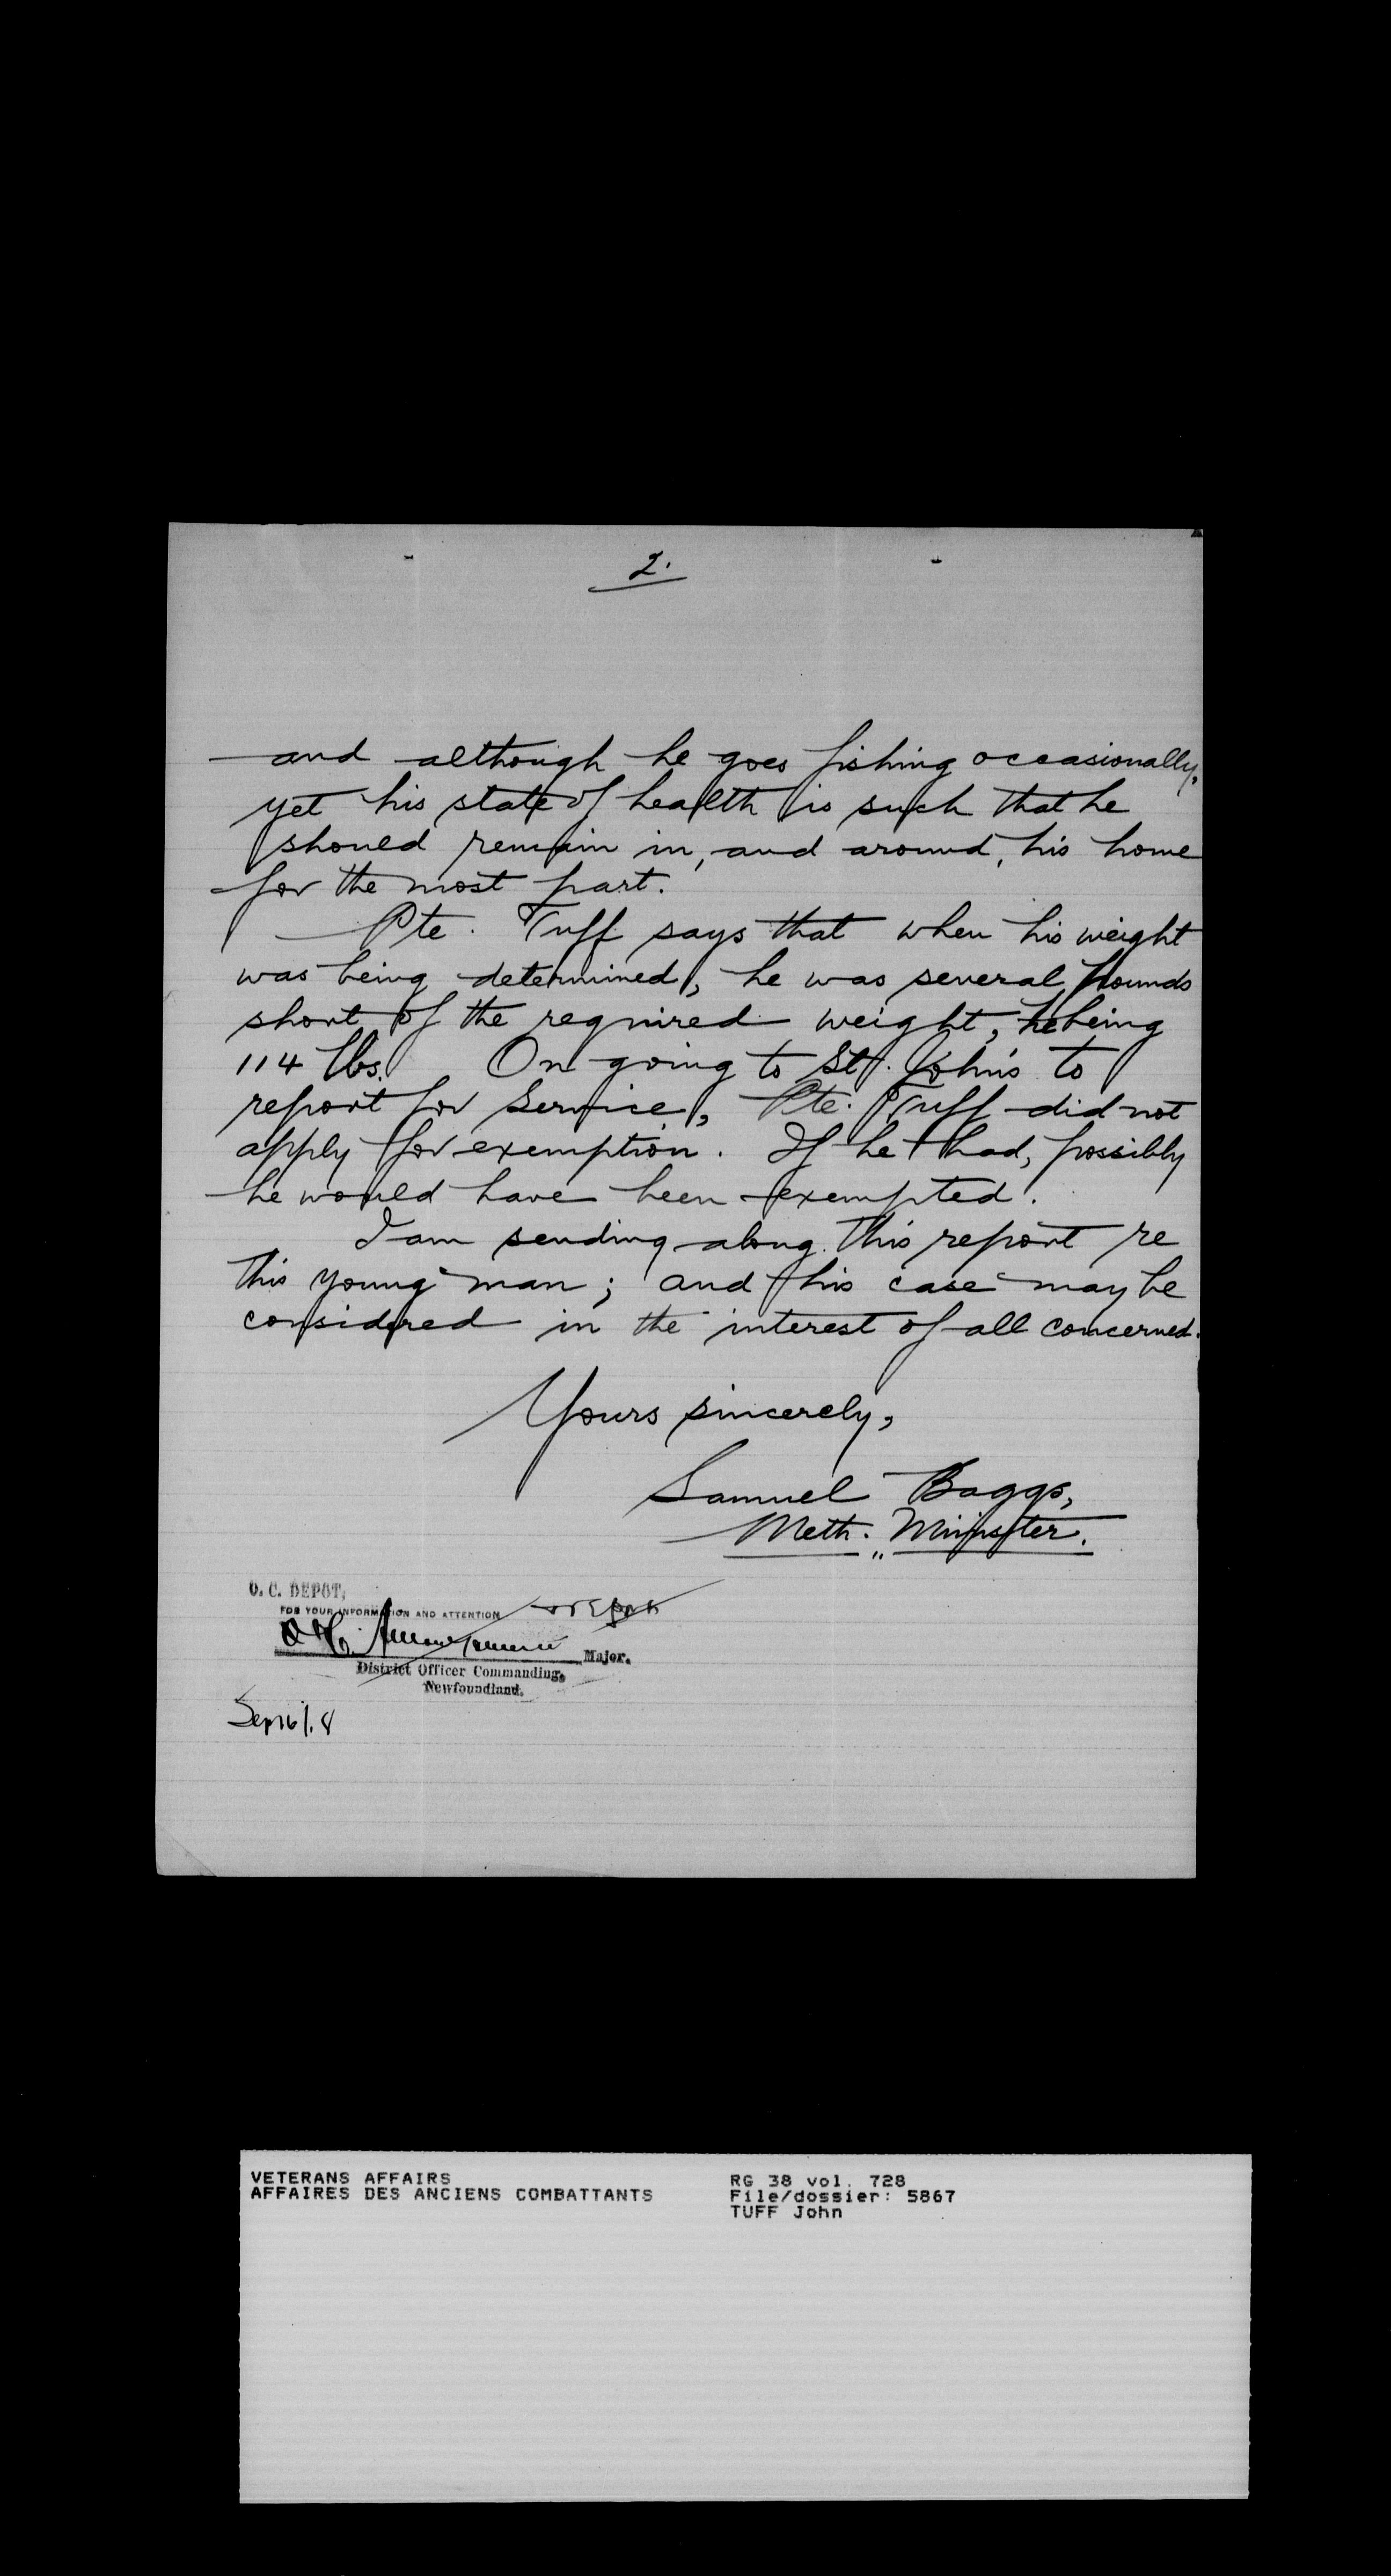 2.
and although he goes fishing occasionally,
yet his state of health is such that he
should remain in, and around, his home
for the most part.
Pte. Tuff says that when his weight
was being determined, he was several pounds
short of the required weight, he being
114 lbs. On going to St. John's to
report for service, Pte. Tuff did not
apply for exemption. If he had, possibly
he would have been exempted.
I am sending along this report re
this young man; and his case may be
considered in the interest of all concerned.
Yours sincerely,
Samuel Baggs,
Meth. Minister.
O. C. DEPOT,
FOR YOUR INFORMATION AND ATTENTION
Major.
District Officer Commanding,
Newfoundland.
VETERANS AFFAIRS
AFFAIRES DES ANCIENS COMBATTANTS
RG 38 vol. 728
File/dossier: 5867
TUFF John